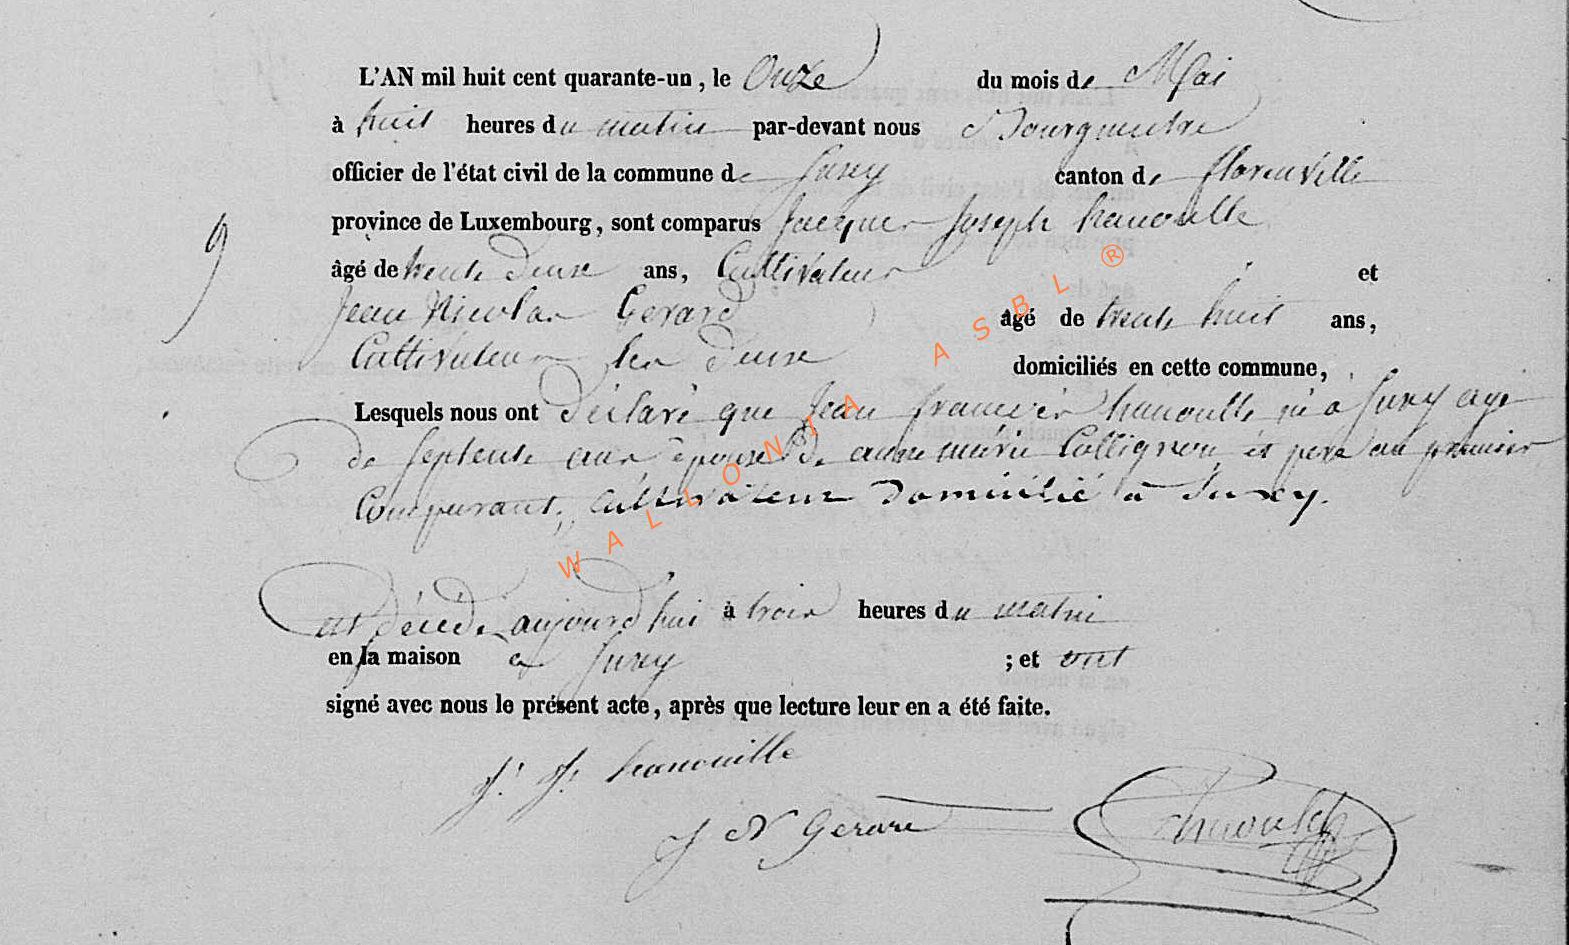 L'AN mil huit cent quarante-un, le Onze du mois de Mai
à huit heures du matin par-devant nous Bourgmestre
officier de l'état civil de la commune de Suxy canton de florenville
province de Luxembourg, sont comparus Jacques Joseph hanoulle
9
âgé de trente deux ans, Cultivateur et
Jean Nicolas Gerard âgé de trente huit ans,
Cultivateur les deux domiciliés en cette commune,
Lesquels nous ont déclaré que Jean françois hanoulle né à Suxy agé
de septente ans époux de anne marie Collignon et pere au premier
Comparant, cultivateur domicilié à Suxy.
est décédé aujourd'hui à trois heures du matin
en la maison a Suxy ; et ont
signé avec nous le présent acte, après que lecture leur en a été faite.
J. J. hanouille
J N Gerard
WALLONIA ASBL ®